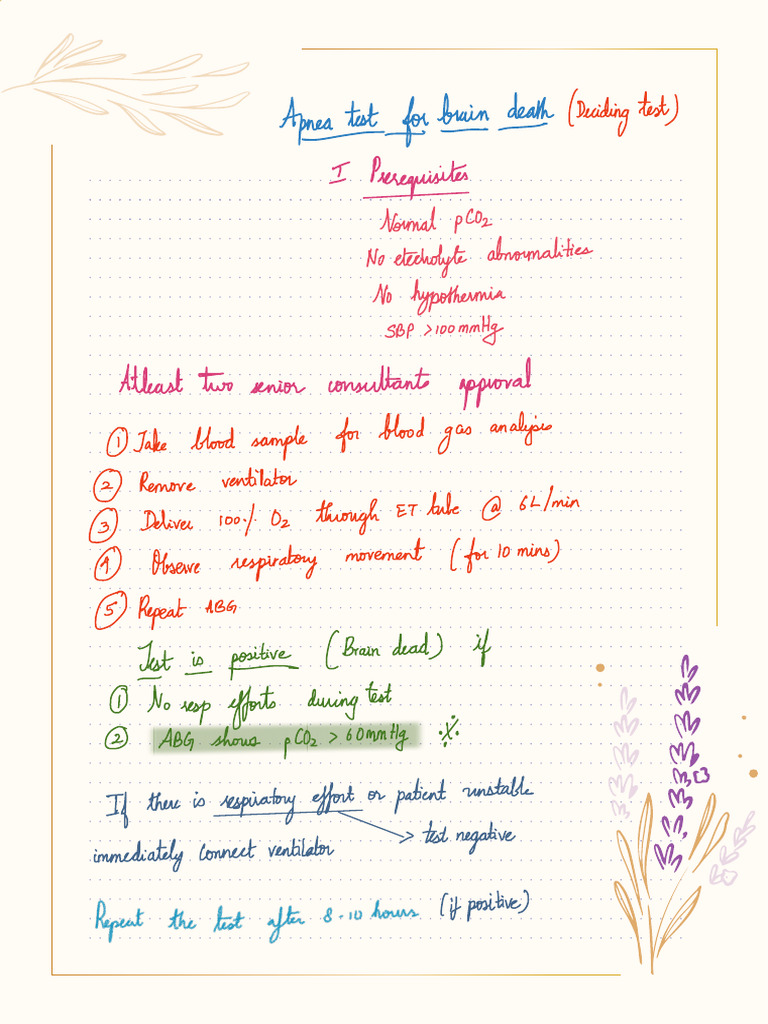 Apnea test for brain death (Deciding test)
I Prerequisites
Normal pCO2
No etecholyte abnormalities
No hypothermia
SBP > 100 mmHg
Atleast two senior consultants approval
① Take blood sample for blood gas analysis
② Remove ventilator
③ Deliver 100% O2 through ET tube @ 6L/min
④ Observe respiratory movement (for 10 mins)
⑤ Repeat ABG
Test is positive (Brain dead) if
① No resp efforts during test
② ABG shows pCO2 > 60mmHg
If there is respiratory effort or patient unstable
test negative
immediately connect ventilator
Repeat the test after 8-10 hours (if positive)